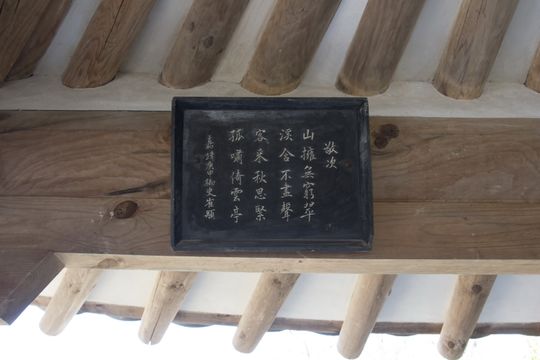 敬次
山擁無窮翠
溪含不盡聲
客來秋思緊
孤嘯倚雲亭
嘉靖庚申御史崔